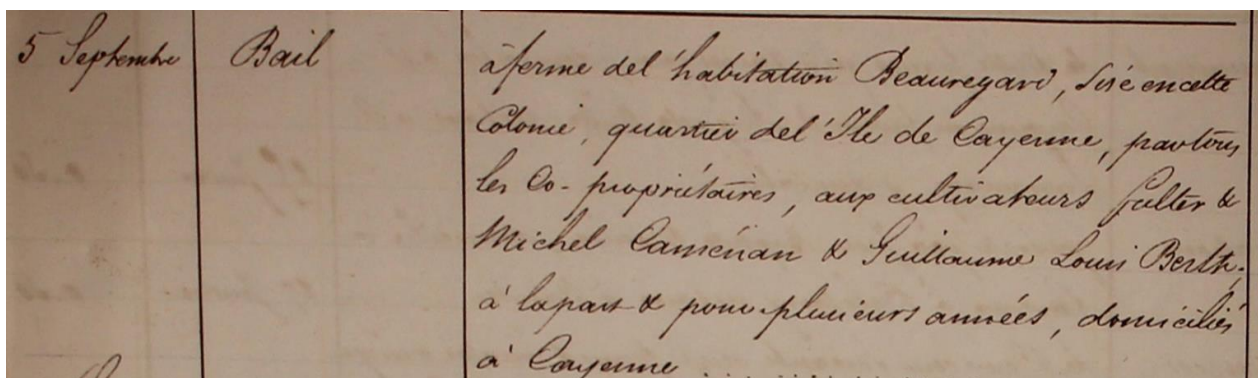 5 Septembre Bail à ferme de l'habitation Beauregard, sise en cette
Colonie, quartier de l'Ile de Cayenne, par tous
les Co-propriétaires, aux cultivateurs &
Michel & Guillaume Louis Berth.
à la part & pour plusieurs années, domiciliés
à Cayenne